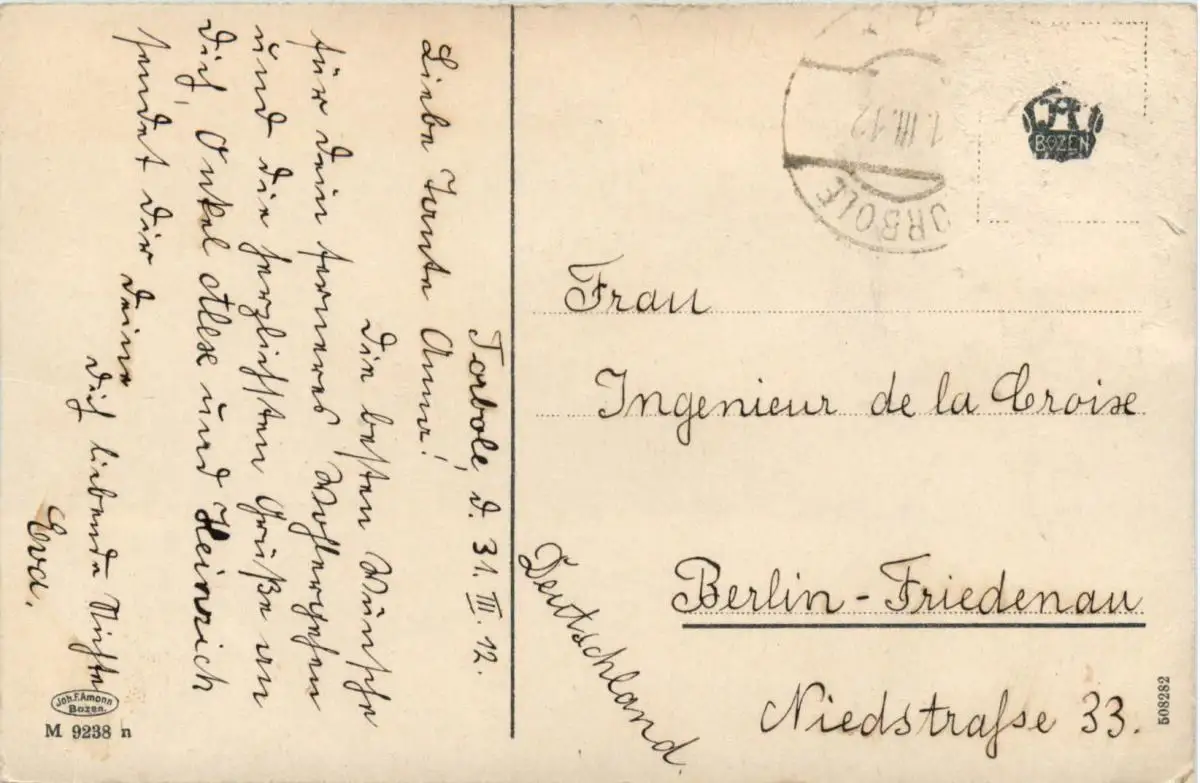 Torbole, d. 31. III. 12.
Liebe Tante Anna!
Die besten Wünsche
für dein ferneres Wohlergehen
und die herzlichsten Grüße an
dich, Onkel Alex und Heinrich
sendet dir deine
dich liebende Nichte
Eva.
Joh. F. Amonn
Bozen.
M 9238 n
ORBOLE
1.III.12
BOZEN
Frau
Ingenieur de la Croixe
Berlin-Friedenau
Niedstraße 33.
Deutschland.
508282